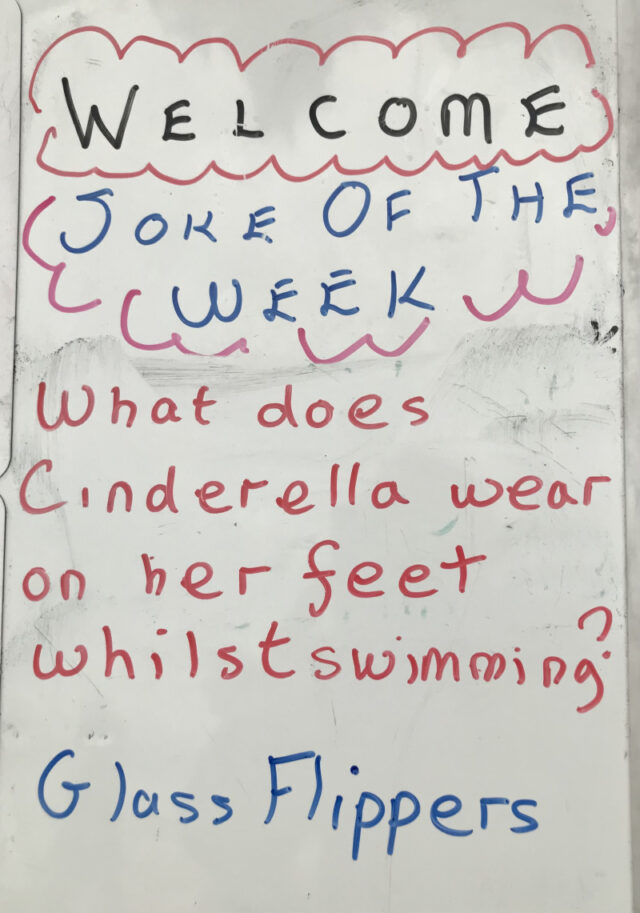 WELCOME
JOKE OF THE
WEEK
What does
Cinderella wear
on her feet
whilst swimming?
Glass Flippers